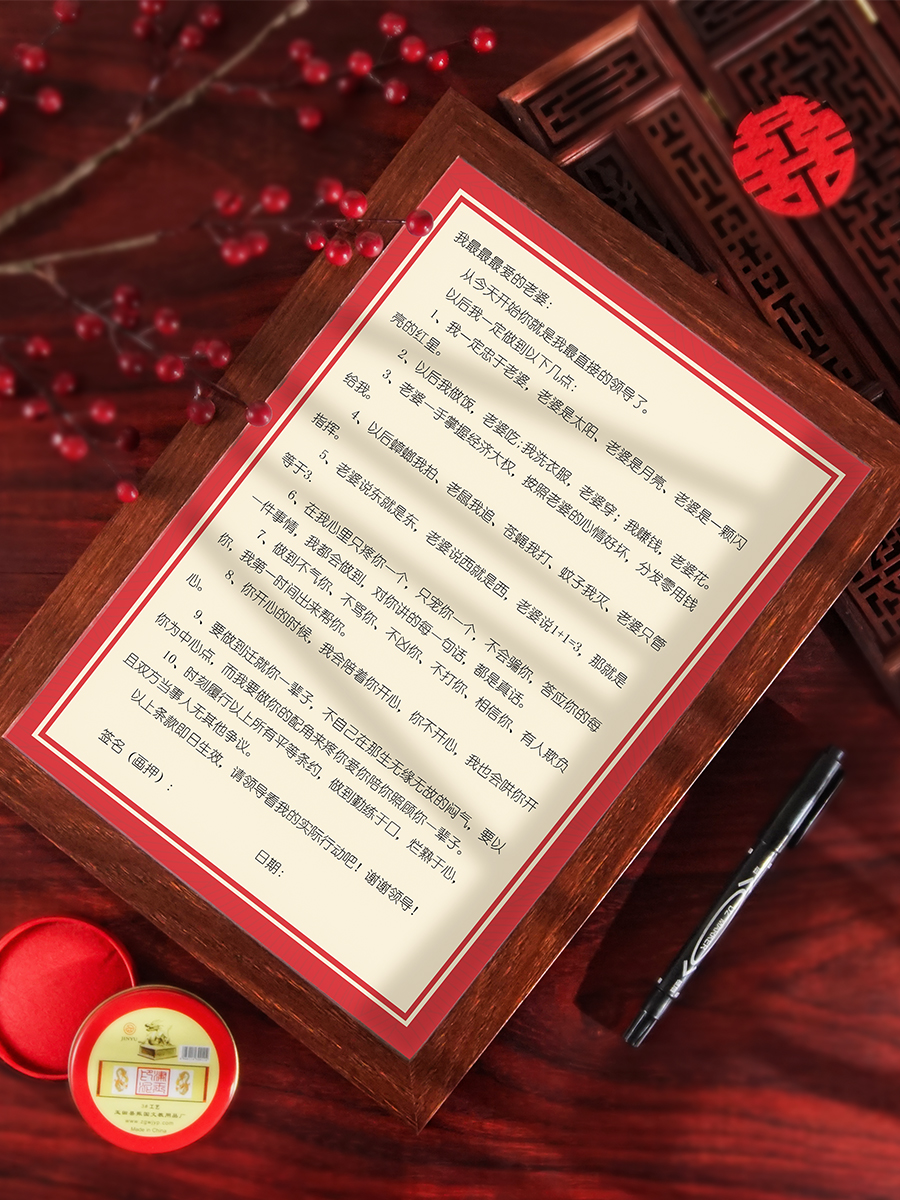 我最最最爱的老婆：
从今天开始你就是我最直接的领导了。
以后我一定做到以下几点：
1、我一定忠于老婆，老婆是太阳、老婆是月亮、老婆是一颗闪
亮的红星。
2、以后我做饭，老婆吃；我洗衣服，老婆穿；我赚钱，老婆花。
3、老婆一手掌握经济大权，按照老婆的心情好坏，分发零用钱
给我。
4、以后蟑螂我拍、老鼠我追、苍蝇我打、蚊子我灭、老婆只管
指挥。
5、老婆说东就是东，老婆说西就是西，老婆说1+1=3，那就是
等于3.
6、在我心里只疼你一个，只宠你一个，不会骗你，答应你的每
一件事情，我都会做到，对你讲的每一句话，都是真话。
7、做到不气你、不骂你、不凶你、不打你、相信你、有人欺负
你，我第一时间出来帮你。
8、你开心的时候，我会陪着你开心，你不开心，我也会哄你开
心。
9、要做到迁就你一辈子，不自己在那生无缘无故的闷气，要以
你为中心点，而我要做你的配角来疼你爱你陪你照顾你一辈子。
10、时刻履行以上所有平等条约，做到勤练于口，烂熟于心，
且双方当事人无其他争议。
以上条款即日生效，请领导看我的实际行动吧！谢谢领导！
签名（画押）：
日期：
囍
JINYU
www.zgmjyp.com
Made in China